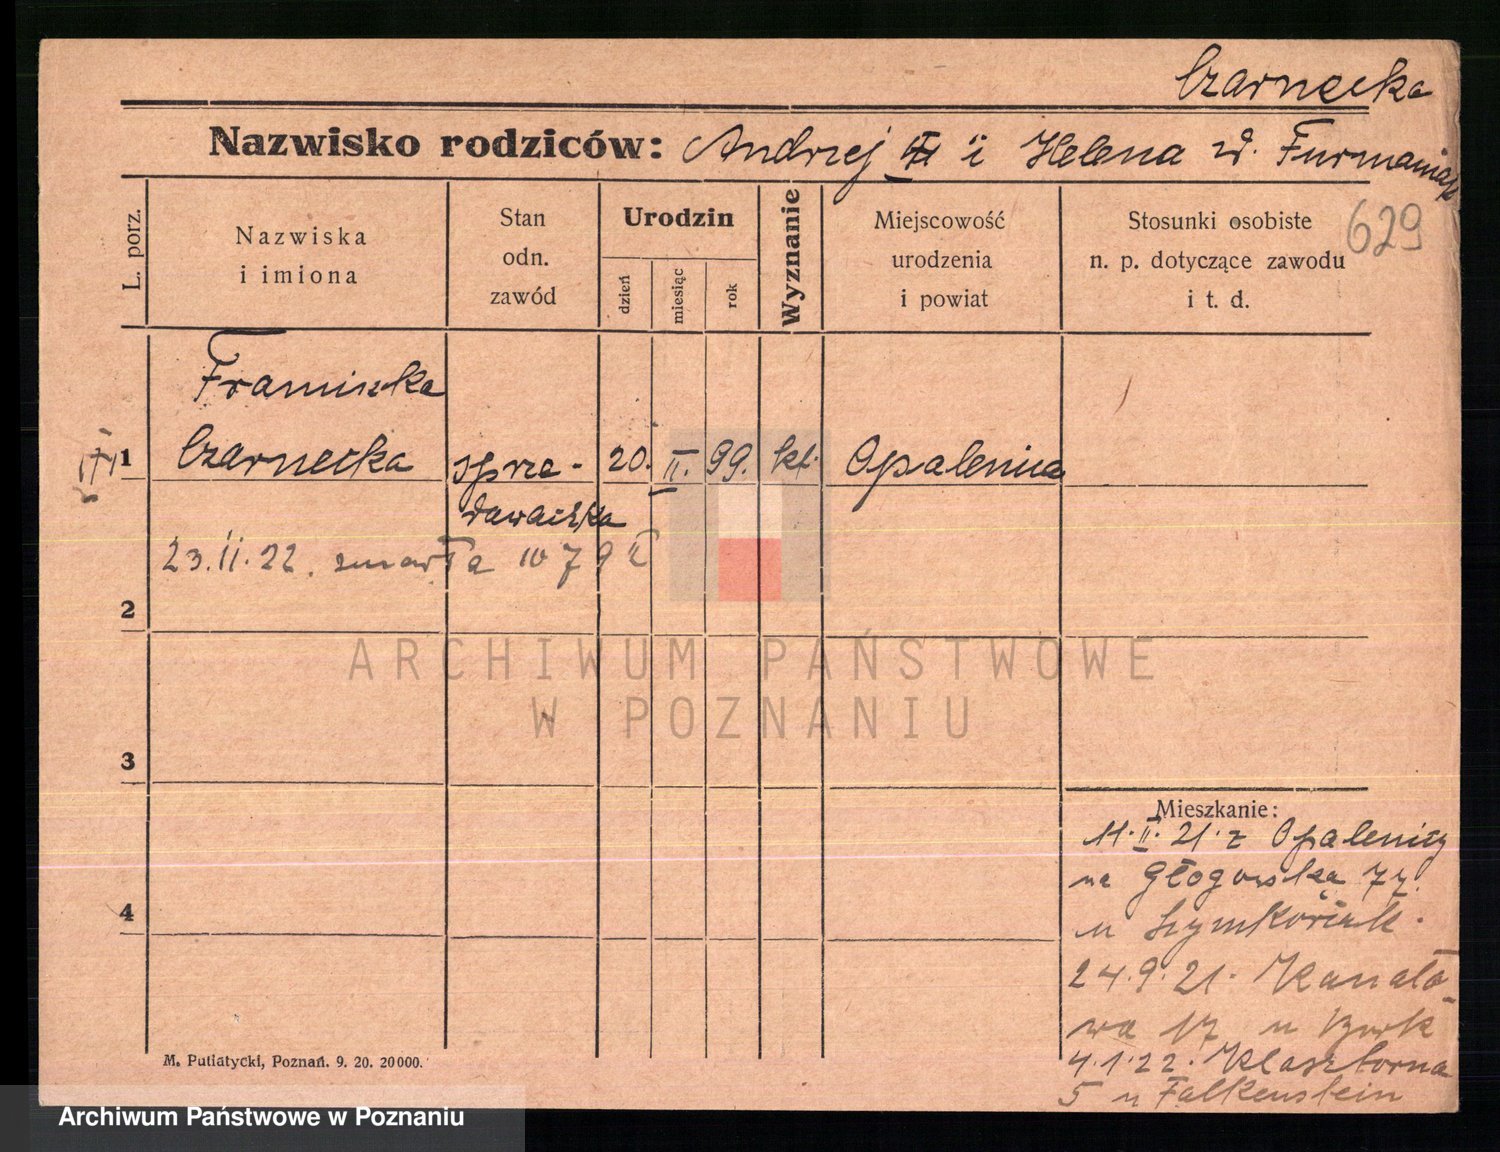 Czarnecka
Nazwisko rodziców: Andrzej i Helena zd. Furmaniak
629
L. porz.
Nazwiska
i imiona
Stan
odn.
zawód
Urodzin
dzień
miesiąc
rok
Wyznanie
Miejscowość
urodzenia
i powiat
Stosunki osobiste
n. p. dotyczące zawodu
i t. d.
Franciszka
1 Czarnecka sprze- 20. II. 99. kt. Opalenica
dawaczka
23.II.22. zmarła 1079
2
ARCHIWUM PAŃSTWOWE
W POZNANIU
3
Mieszkanie:
11.II.21. z Opalenicy
na Głogowska 77.
4
u Szymkowiak.
24.9.21. Kanało-
wa 17 u Burk
4.1.22. Klasztorna
5 u Falkenstein
M. Putiatycki, Poznań. 9. 20. 20000.
Archiwum Państwowe w Poznaniu